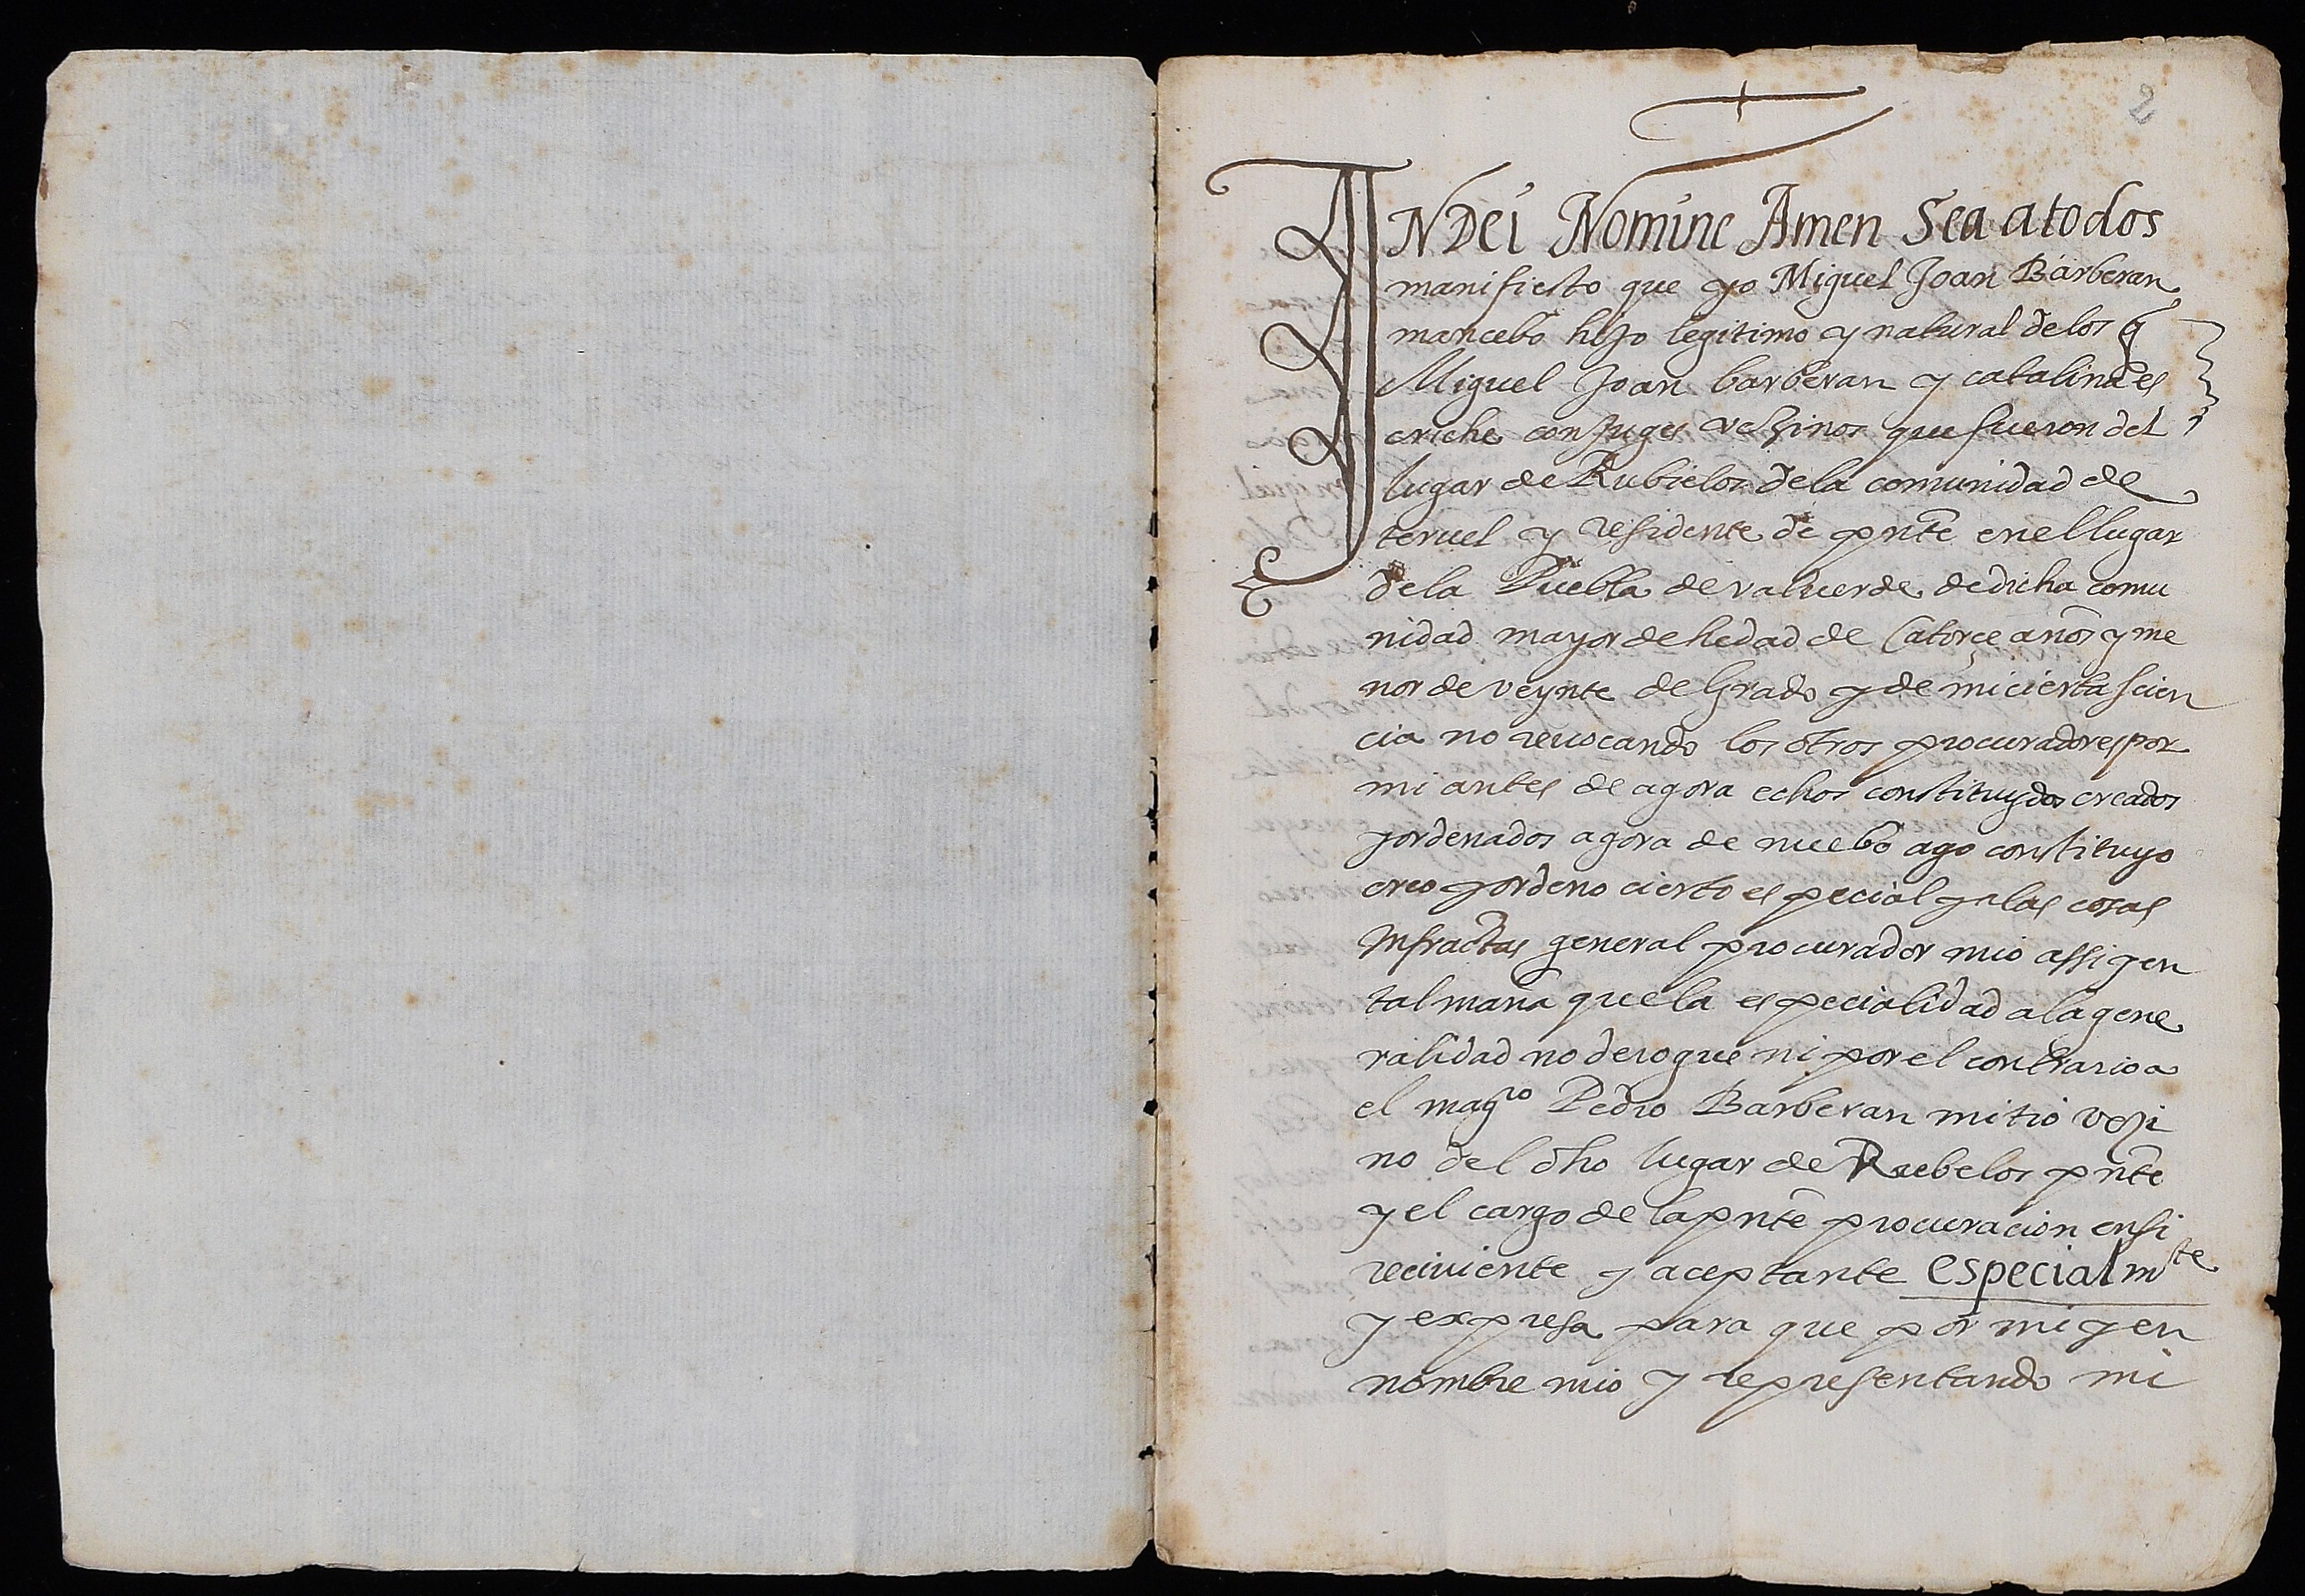 2
IN Dei Nomine Amen Sea a todos
manifiesto que yo Miguel Joan Barberan
mancebo hijo legitimo y natural delos q
Miguel Joan barberan y catalina es
criche conjuges vezinos que fueron del
lugar de Rubielos dela comunidad de
teruel y residente de pnte en el lugar
dela Puebla de valuerde de dicha comu
nidad mayor de hedad de Catorçe años y me
nor de veynte de Grado y de mi cierta scien
cia no reuocando los otros procuradores por
mi antes de agora echos constituydos creados
y ordenados agora de nuebo ago constituyo
creo y ordeno cierto especial y a las cosas
infractas general procurador mio assi y en
tal mana que la especialidad a la gene
ralidad no derogue ni por el contrario a
el magco Pedro Barberan mi tio vezi
no del dho lugar de Ruebelos pnte
y el cargo de la pnte procuracion en si
reciuiente y aceptante especialmte
y expresa para que por mi y en
nombre mio y representando mi